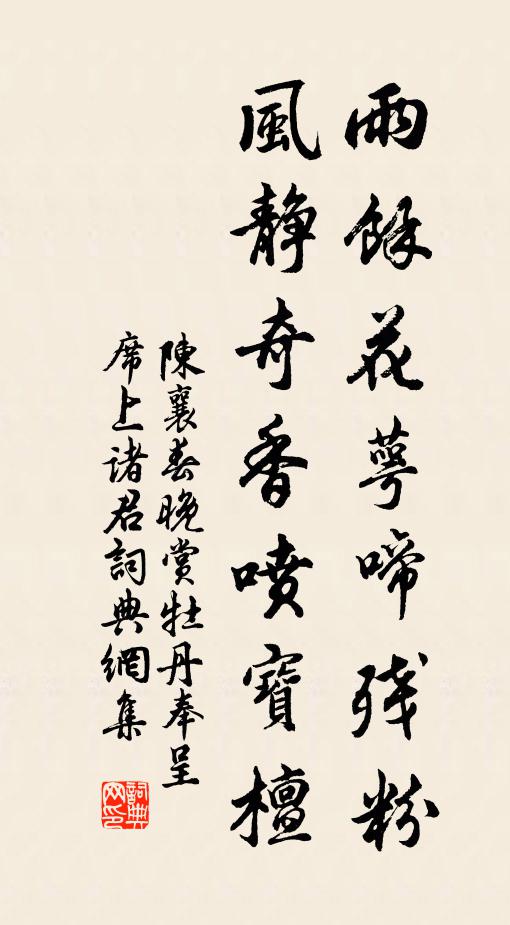 雨餘花萼啼残粉
風静奇香噴寶檀
陳襄春晚赏牡丹奉呈
席上诸君詞典網集
詞典网印